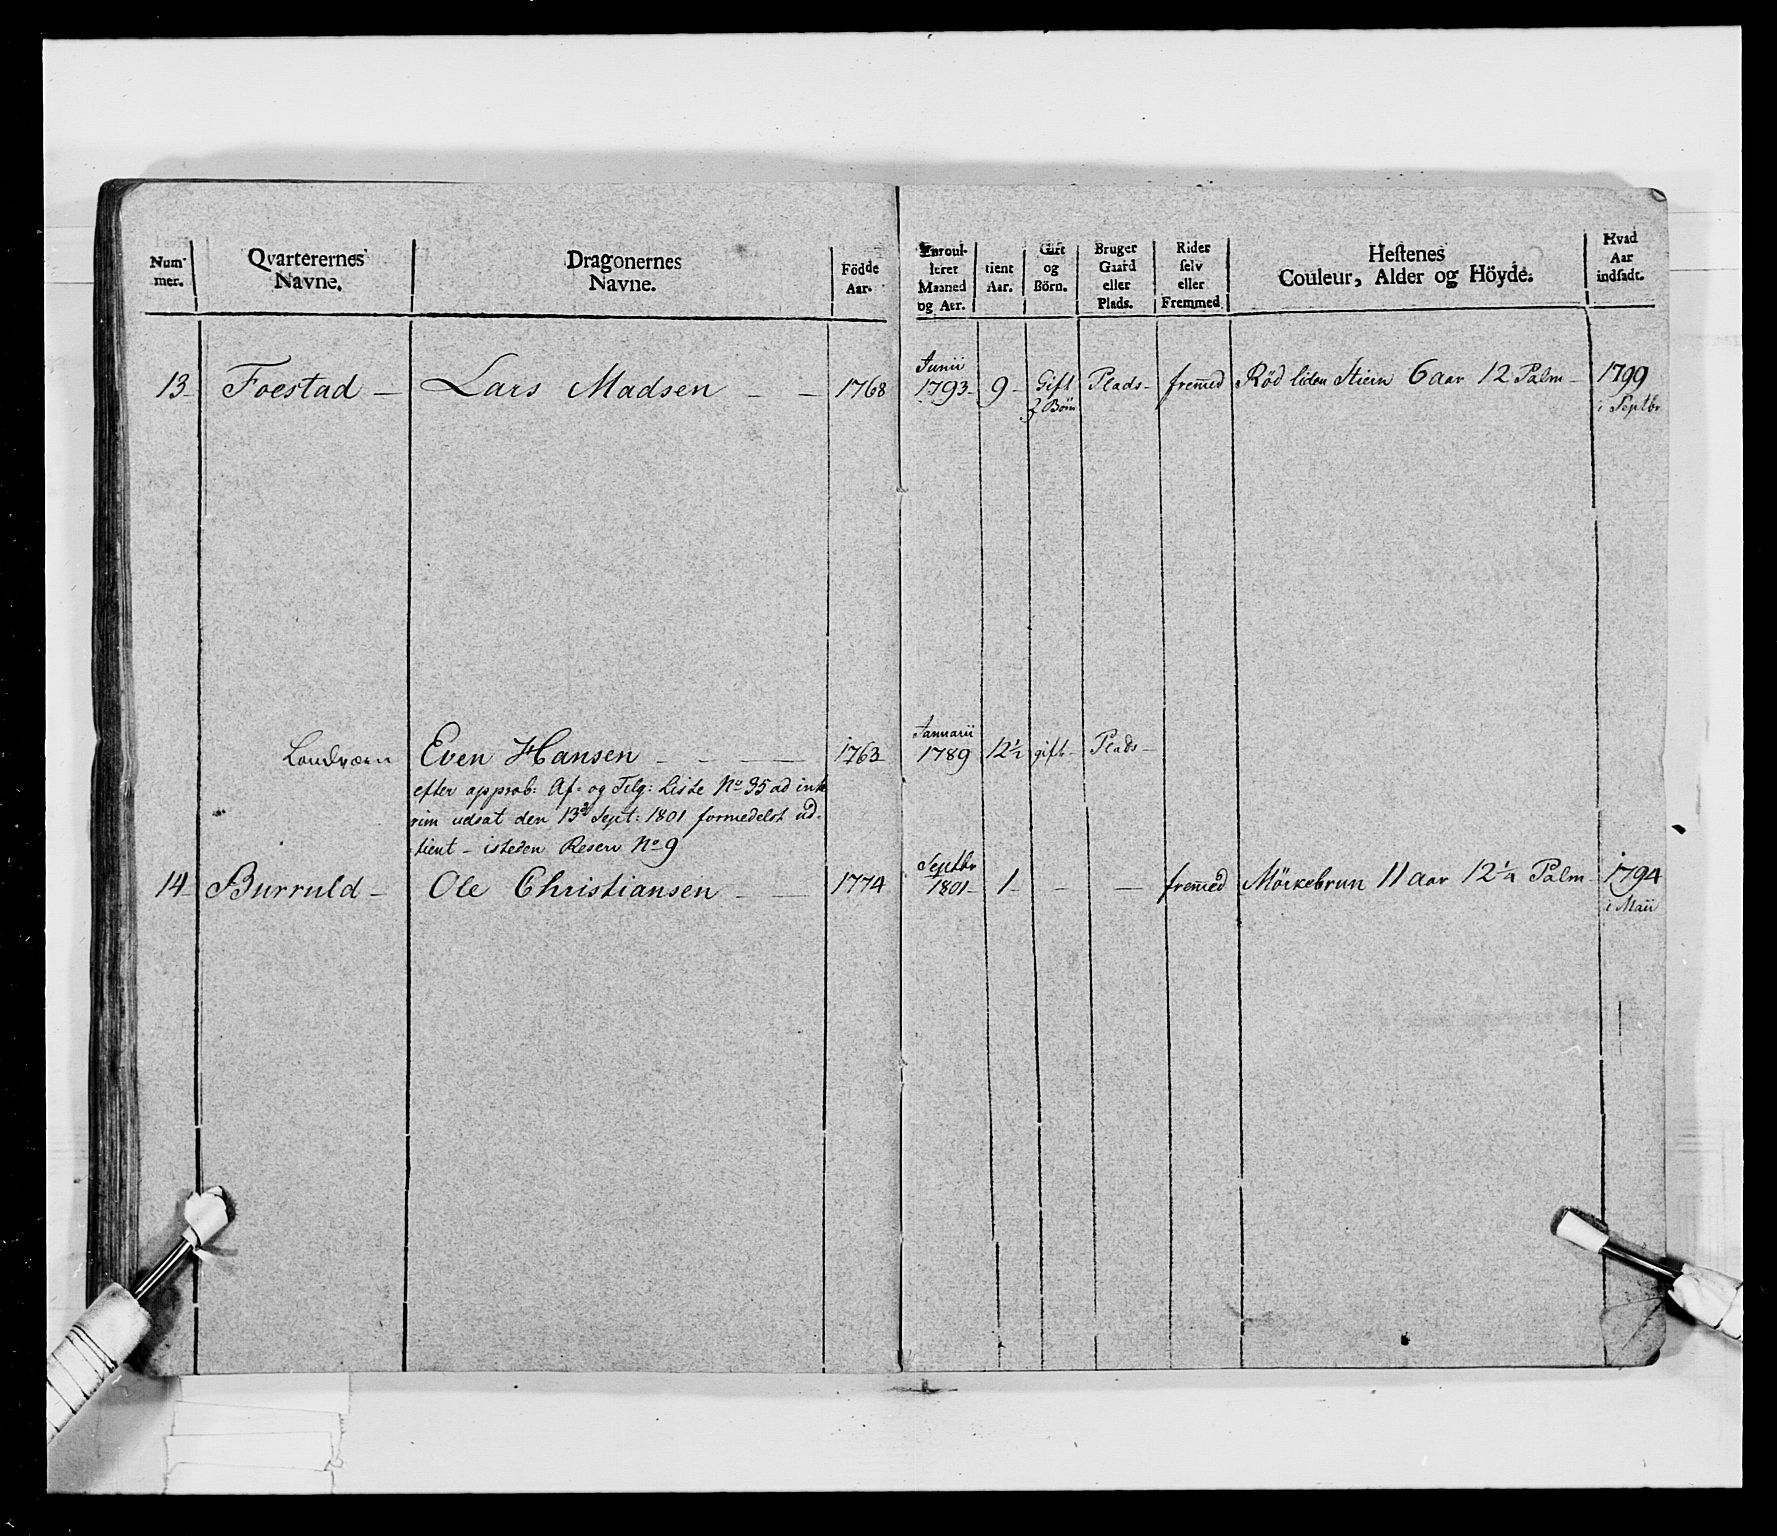 Num- mer. | Qvarterernes Navne. | Dragonernes Navne. | Födde Aar. | Enroul- leret Maaned og Aar. | tient Aar. | Gift og Börn. | Bruger Gaard eller Plads. | Rider selv eller Fremmed. | Hestenes Couleur, Alder og Höyde. | Hvad Aar indsadt.
13 - Foestad - Lars Madsen - - 1768 Junii 1793 - 9 - Gift 2 Börn Plads - fremed Rød liden Stiern 6 aar 12 Palm - 1799 i Septbr
Landværn Even Hansen - - - 1763 Januarii 1789 12½ gift - Plads -
efter approb: Af- og Tilg: Liste No 35 ad inte
rim udsat den 13de Sept: 1801 formedelst ud-
tient - isteden Reserv No 9
14 - Burruld - Ole Christiansen - - 1774 Septbr 1801 - 1 - - - fremed Mörkebrun 11 aar 12¼ Palm - 1794 i Maii